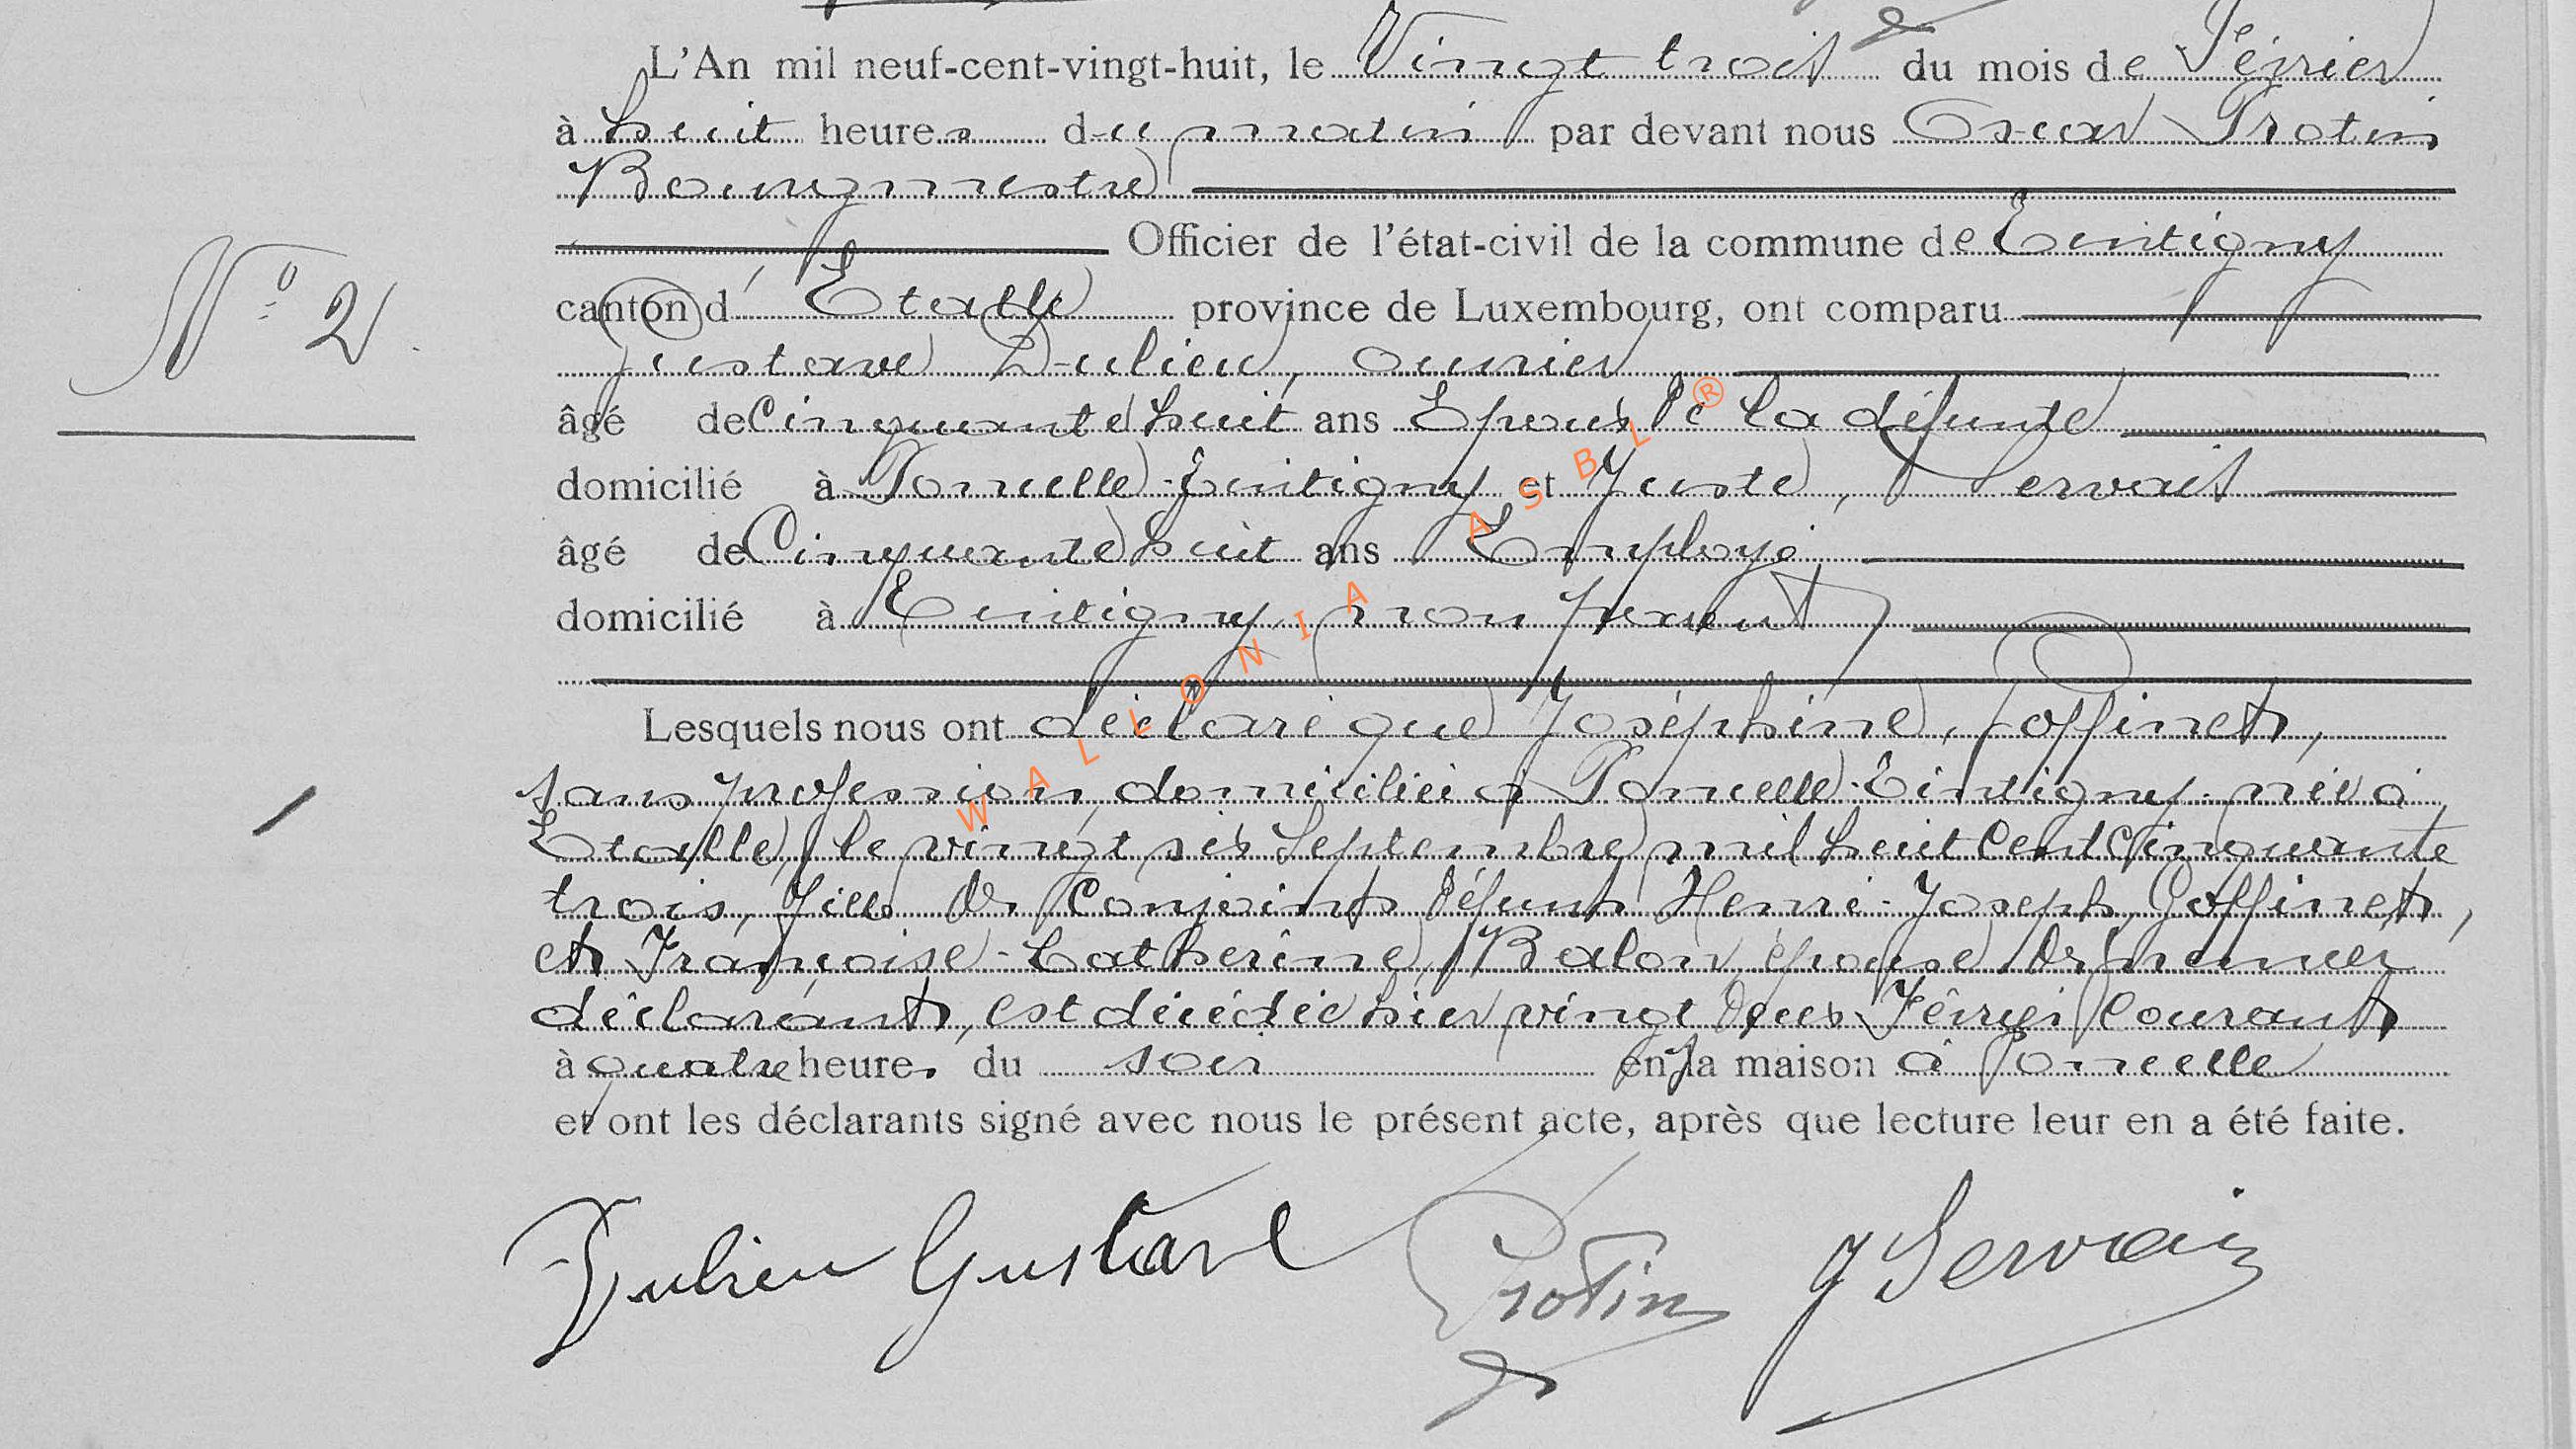 L'An mil neuf-cent-vingt-huit, le Vingt trois du mois de Février
à huit heures du matin par devant nous Oscar Protin
Bourgmestre
Officier de l'état-civil de la commune de Tintigny
N° 2.
canton d'Etalle province de Luxembourg, ont comparu
Gustave Dulieu, ouvrier
âgé de Cinquante huit ans Epoux de la défunte
domicilié à Poncelle-Tintigny et Juste, Servais
âgé de Cinquante huit ans Employé
domicilié à Tintigny, non parent
Lesquels nous ont déclaré que Joséphine, Goffinet,
sans profession, domiciliée à Poncelle-Tintigny née à
Etalle, le vingt six Septembre mil huit Cent Cinquante
trois, fille de Conjoints défunts Henri-Joseph, Goffinet,
et Françoise-Catherine, Balon, épouse du premier
déclarant, est décédée hier vingt deux Février Courant
à quatre heures du soir en la maison à Poncelle
et ont les déclarants signé avec nous le présent acte, après que lecture leur en a été faite.
Dulieu Gustave Protin J Servais
WALLONIA ASBL®